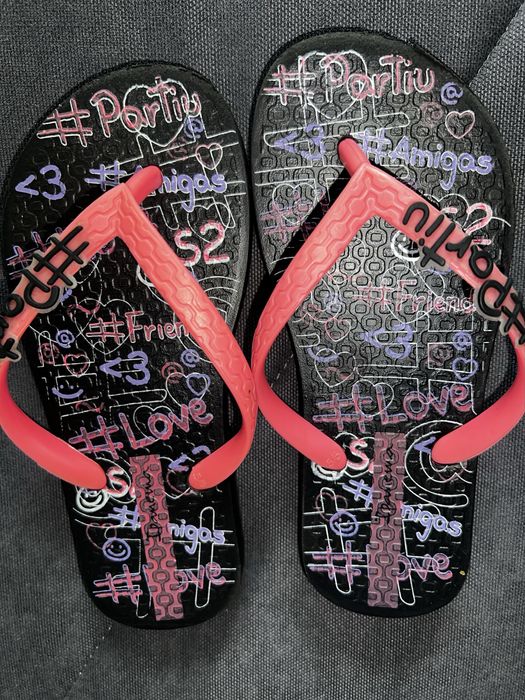 #Partiu
@
<3
#Amigas
S2
#Partiu
@
#Friend
<3
#Love
<3
#Amigas
#Love
#Partiu
@
<3
#Amigas
S2
#Partiu
#Friend
<3
#Love
Ipanema
@
#Amigas
#Love